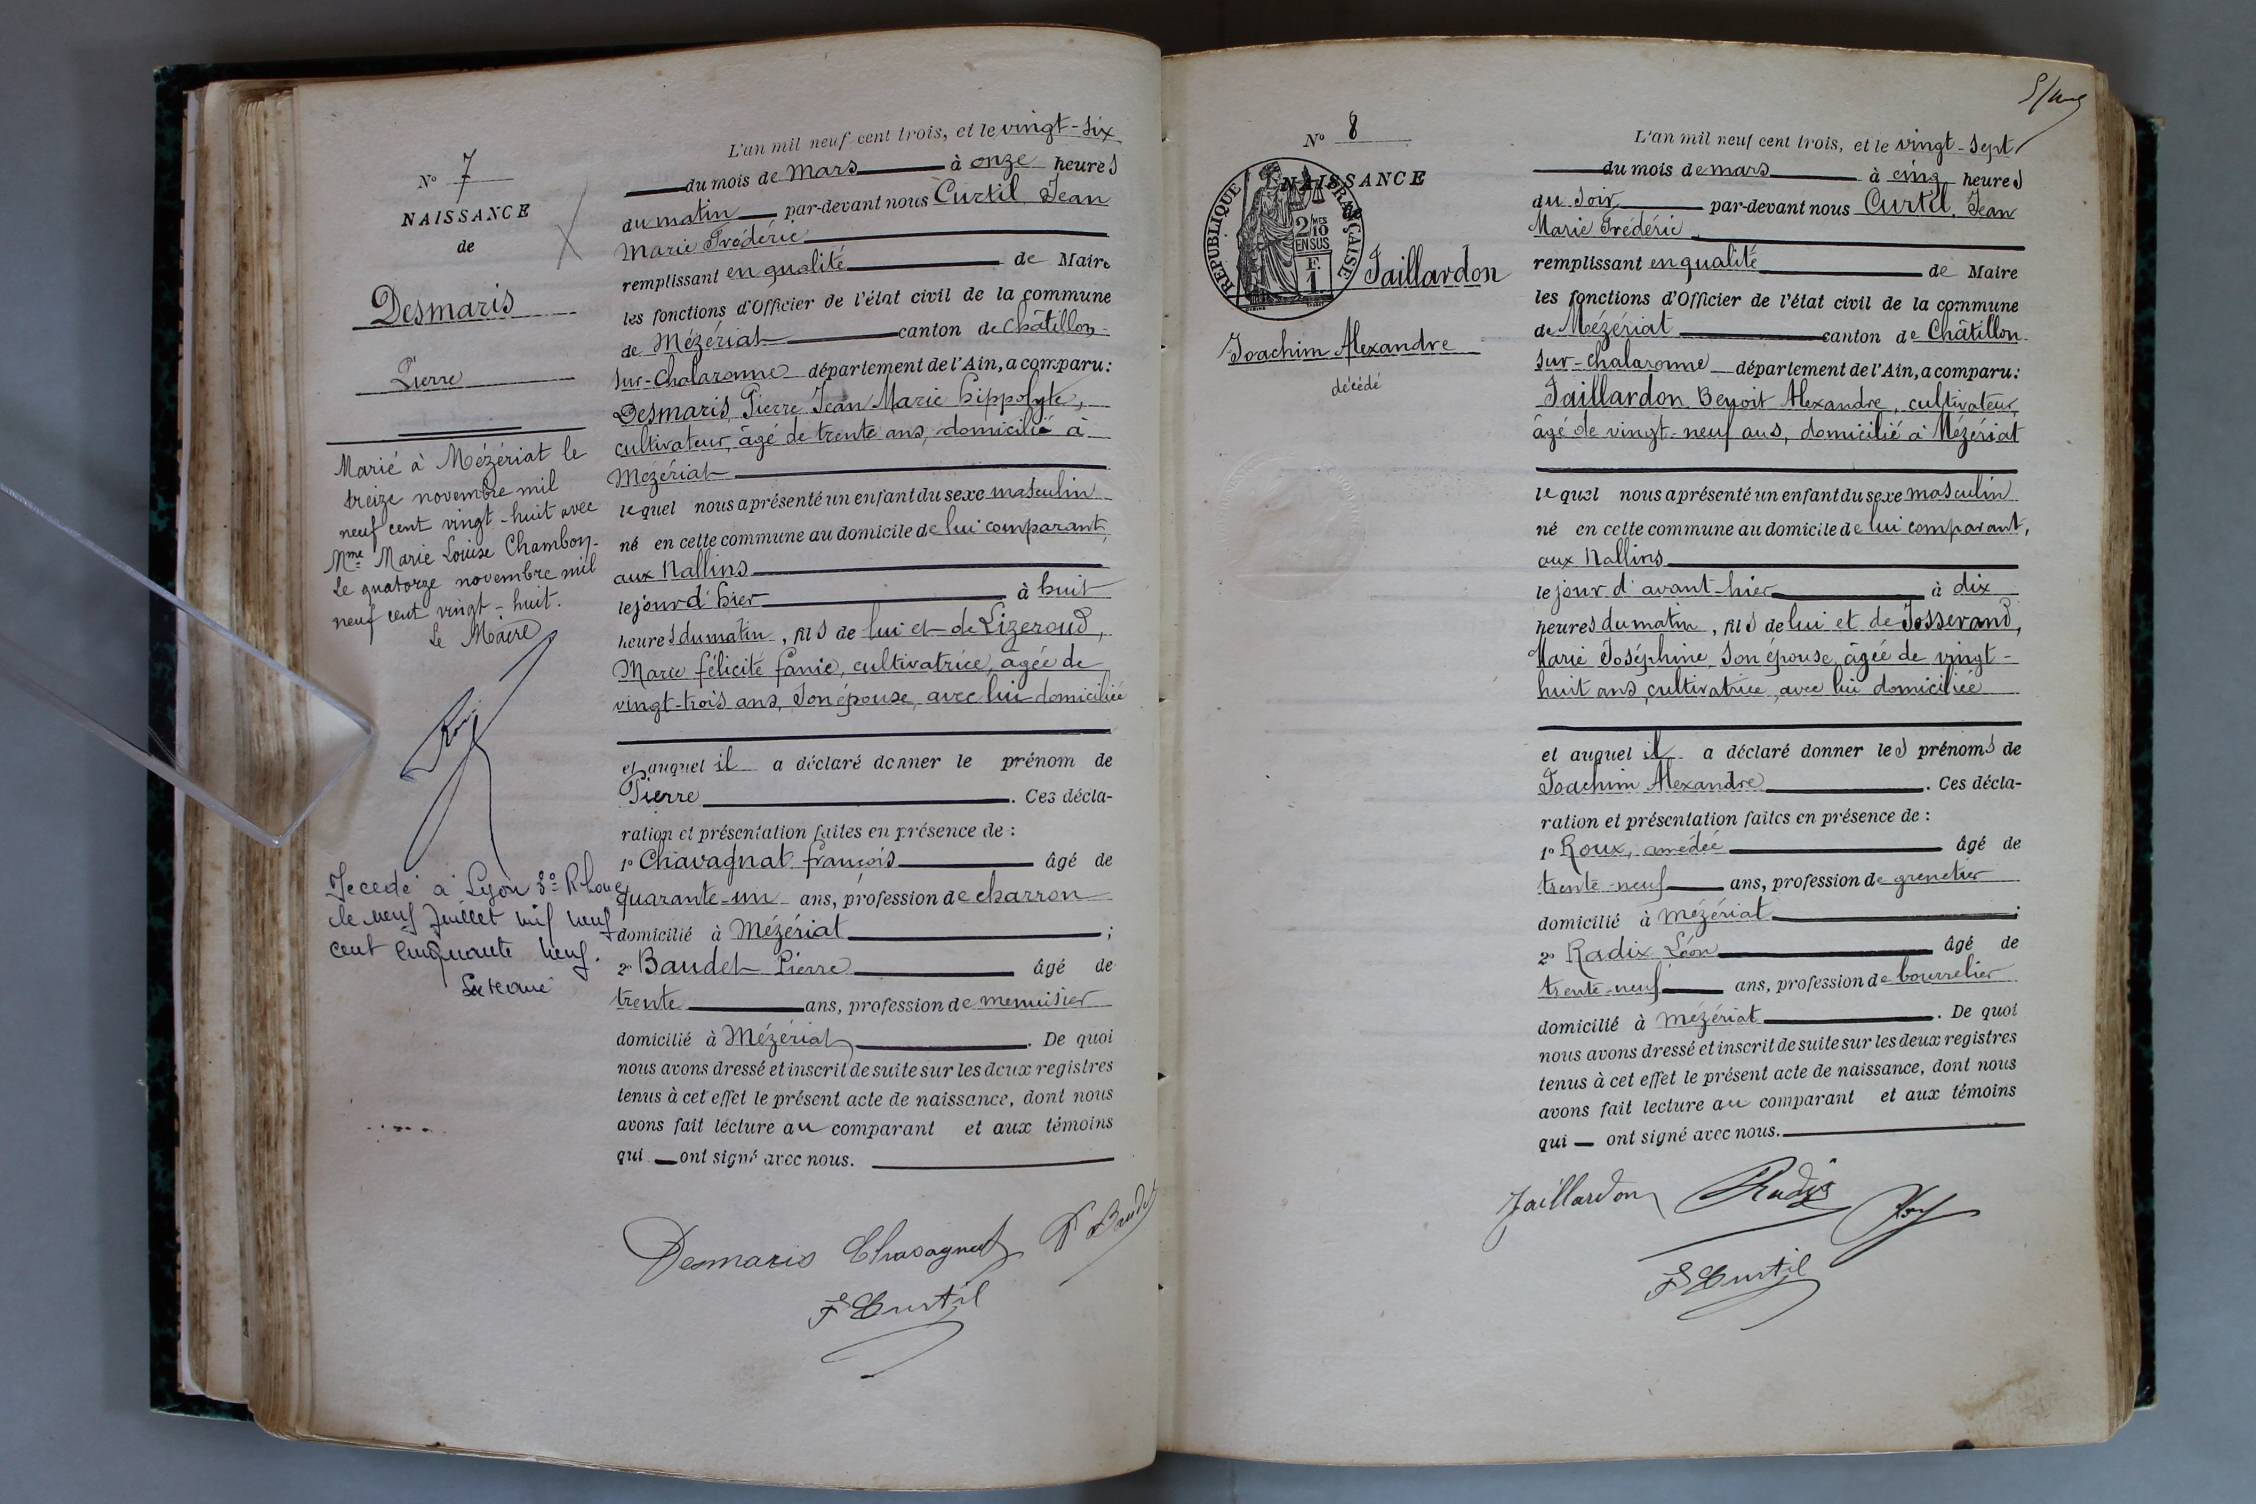 N° 7
NAISSANCE
de
Desmaris
Pierre
Marié à Mézériat le
treize novembre mil
neuf cent vingt-huit avec
Mme Marie Louise Chambon.
Le quatorze novembre mil
neuf cent vingt-huit.
Le Maire
Décédé à Lyon 3e Rhone
le neuf Juillet mil neuf
cent cinquante neuf.
L'an mil neuf cent trois, et le vingt-six
du mois de Mars à onze heures
du matin par-devant nous Curtil, Jean
Marie Frédéric
remplissant en qualité de Maire
les fonctions d'Officier de l'état civil de la commune
de Mézériat canton de Châtillon-
sur-Chalaronne département de l'Ain, a comparu:
Desmaris, Pierre Jean Marie hippolyte,
cultivateur, âgé de trente ans, domicilié à
Mézériat
lequel nous a présenté un enfant du sexe masculin
né en cette commune au domicile de lui comparant,
aux Nallins
le jour d'hier à huit
heures du matin, fils de lui et de Lizeroud,
Marie félicité fanie, cultivatrice, agée de
vingt-trois ans, son épouse, avec lui domiciliée
et auquel il a déclaré donner le prénom de
Pierre. Ces décla-
ration et présentation faites en présence de :
1° Chavagnat françois âgé de
quarante-un ans, profession de charron
domicilié à Mézériat ;
2° Baudet Pierre âgé de
trente ans, profession de menuisier
domicilié à Mézériat. De quoi
nous avons dressé et inscrit de suite sur les deux registres
tenus à cet effet le présent acte de naissance, dont nous
avons fait lecture au comparant et aux témoins
qui ont signé avec nous.
Desmaris Chavagnat P Baudet
F Curtil
N° 8
NAISSANCE
REPUBLIQUE FRANÇAISE
2/10 MES
EN SUS
F.
1
Jaillardon
Joachim Alexandre
décédé
L'an mil neuf cent trois, et le vingt-sept
du mois de mars à cinq heures
du soir par-devant nous Curtil, Jean
Marie Frédéric
remplissant en qualité de Maire
les fonctions d'Officier de l'état civil de la commune
de Mézériat canton de Châtillon-
sur-chalaronne département de l'Ain, a comparu:
Jaillardon Benoit Alexandre, cultivateur,
âgé de vingt-neuf ans, domicilié à Mézériat
lequel nous a présenté un enfant du sexe masculin
né en cette commune au domicile de lui comparant,
aux Nallins
le jour d'avant-hier à dix
heures du matin, fils de lui et de Josserand,
Marie Joséphine, son épouse, âgée de vingt-
huit ans, cultivatrice, avec lui domiciliée
et auquel il a déclaré donner les prénoms de
Joachim Alexandre. Ces décla-
ration et présentation faites en présence de :
1° Roux, amédée âgé de
trente-neuf ans, profession de grenetier
domicilié à Mézériat ;
2° Radix Léon âgé de
trente-neuf ans, profession de bourrelier
domicilié à Mézériat. De quoi
nous avons dressé et inscrit de suite sur les deux registres
tenus à cet effet le présent acte de naissance, dont nous
avons fait lecture au comparant et aux témoins
qui ont signé avec nous.
Jaillardon Radix
F Curtil